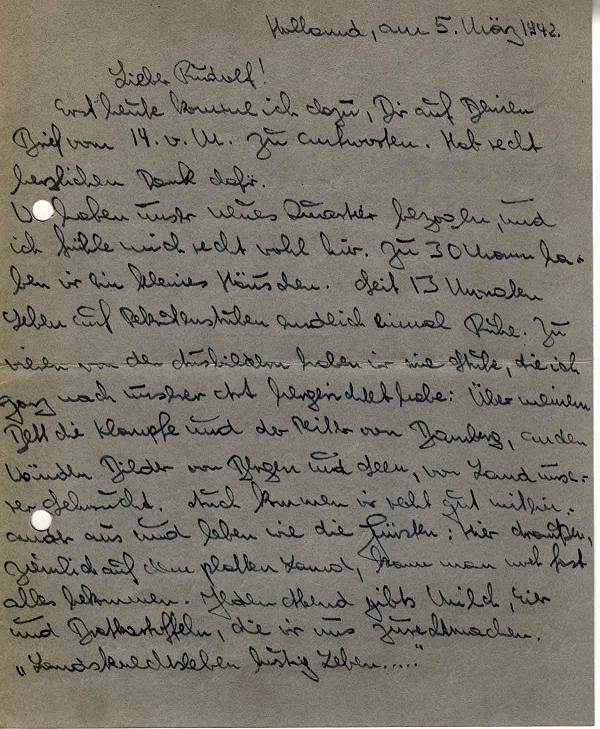 Holland, am 5. März 1942.
Lieber Rudolf!
Erst heute komme ich dazu, Dir auf Deinen
Brief vom 14. v. M. zu antworten. Hab recht
herzlichen Dank dafür.
haben unser neues Quartier bezogen, und
ich fühle mich recht wohl hier. Zu 30 Mann ha-
ben wir ein kleines Häuschen. Seit 13 Monaten
Leben auf Rekrutenstuben endlich einmal Ruhe. Zu
vieren von den Ausbildern haben wir eine Stube, die ich
ganz nach unserer Art hergerichtet habe: Über meinem
Bett die Klampfe und der Reiter von Bamberg, an den
Wänden Bilder von Bergen und Seen, von Land unse-
rer Sehnsucht. Auch kommen wir recht gut mitein-
ander aus und leben wie die Fürsten: Hier draußen,
ziemlich auf dem platten Land, kann man noch fast
alles bekommen. Jeden Abend gibts Milch, Eier
und Bratkartoffeln, die wir uns zurechtmachen.
„Landsknechtsleben lustig Leben....."